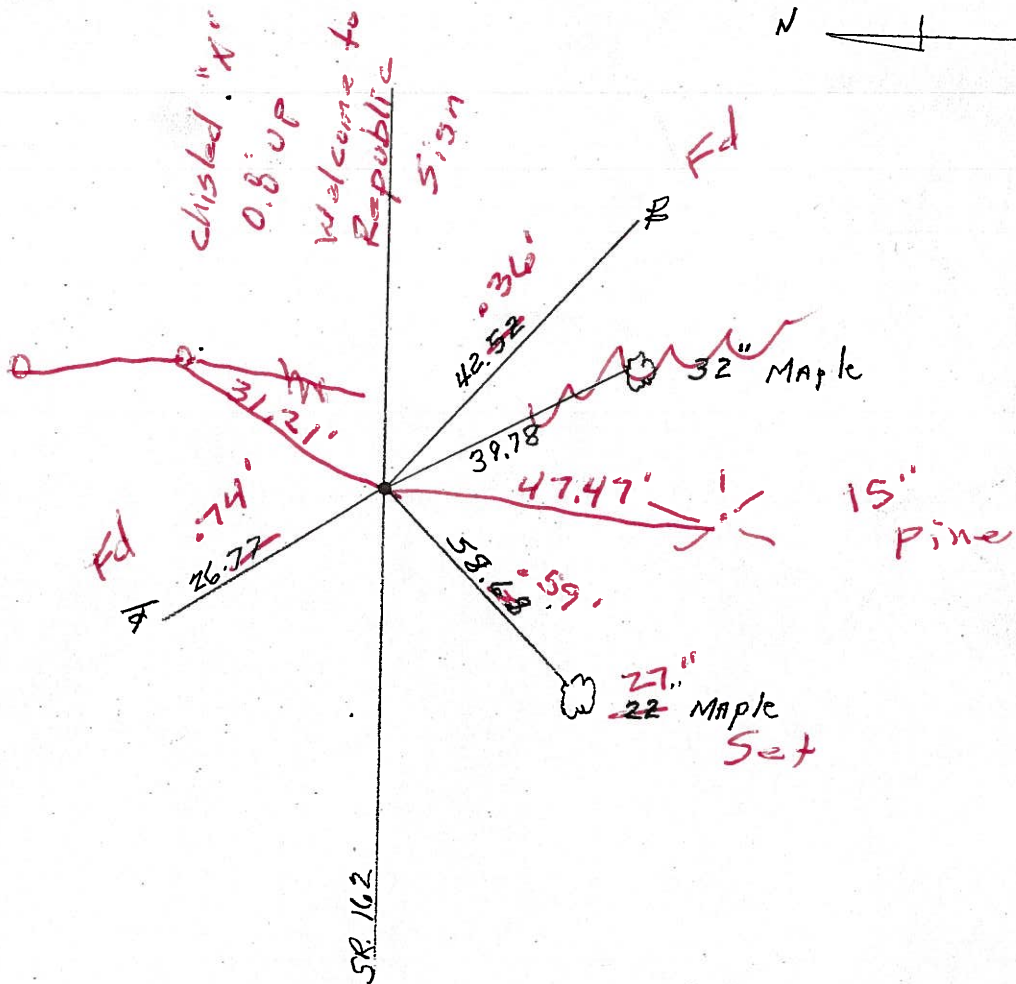 N
chisled "X"
0.8' up
Welcome to
Republic
Sign
Fd
.36'
42.52
32" Maple
39.78
31.21'
47.47'
15"
pine
Fd
.74'
26.77
58.68
.59'
27"
22 Maple
Set
SR. 162